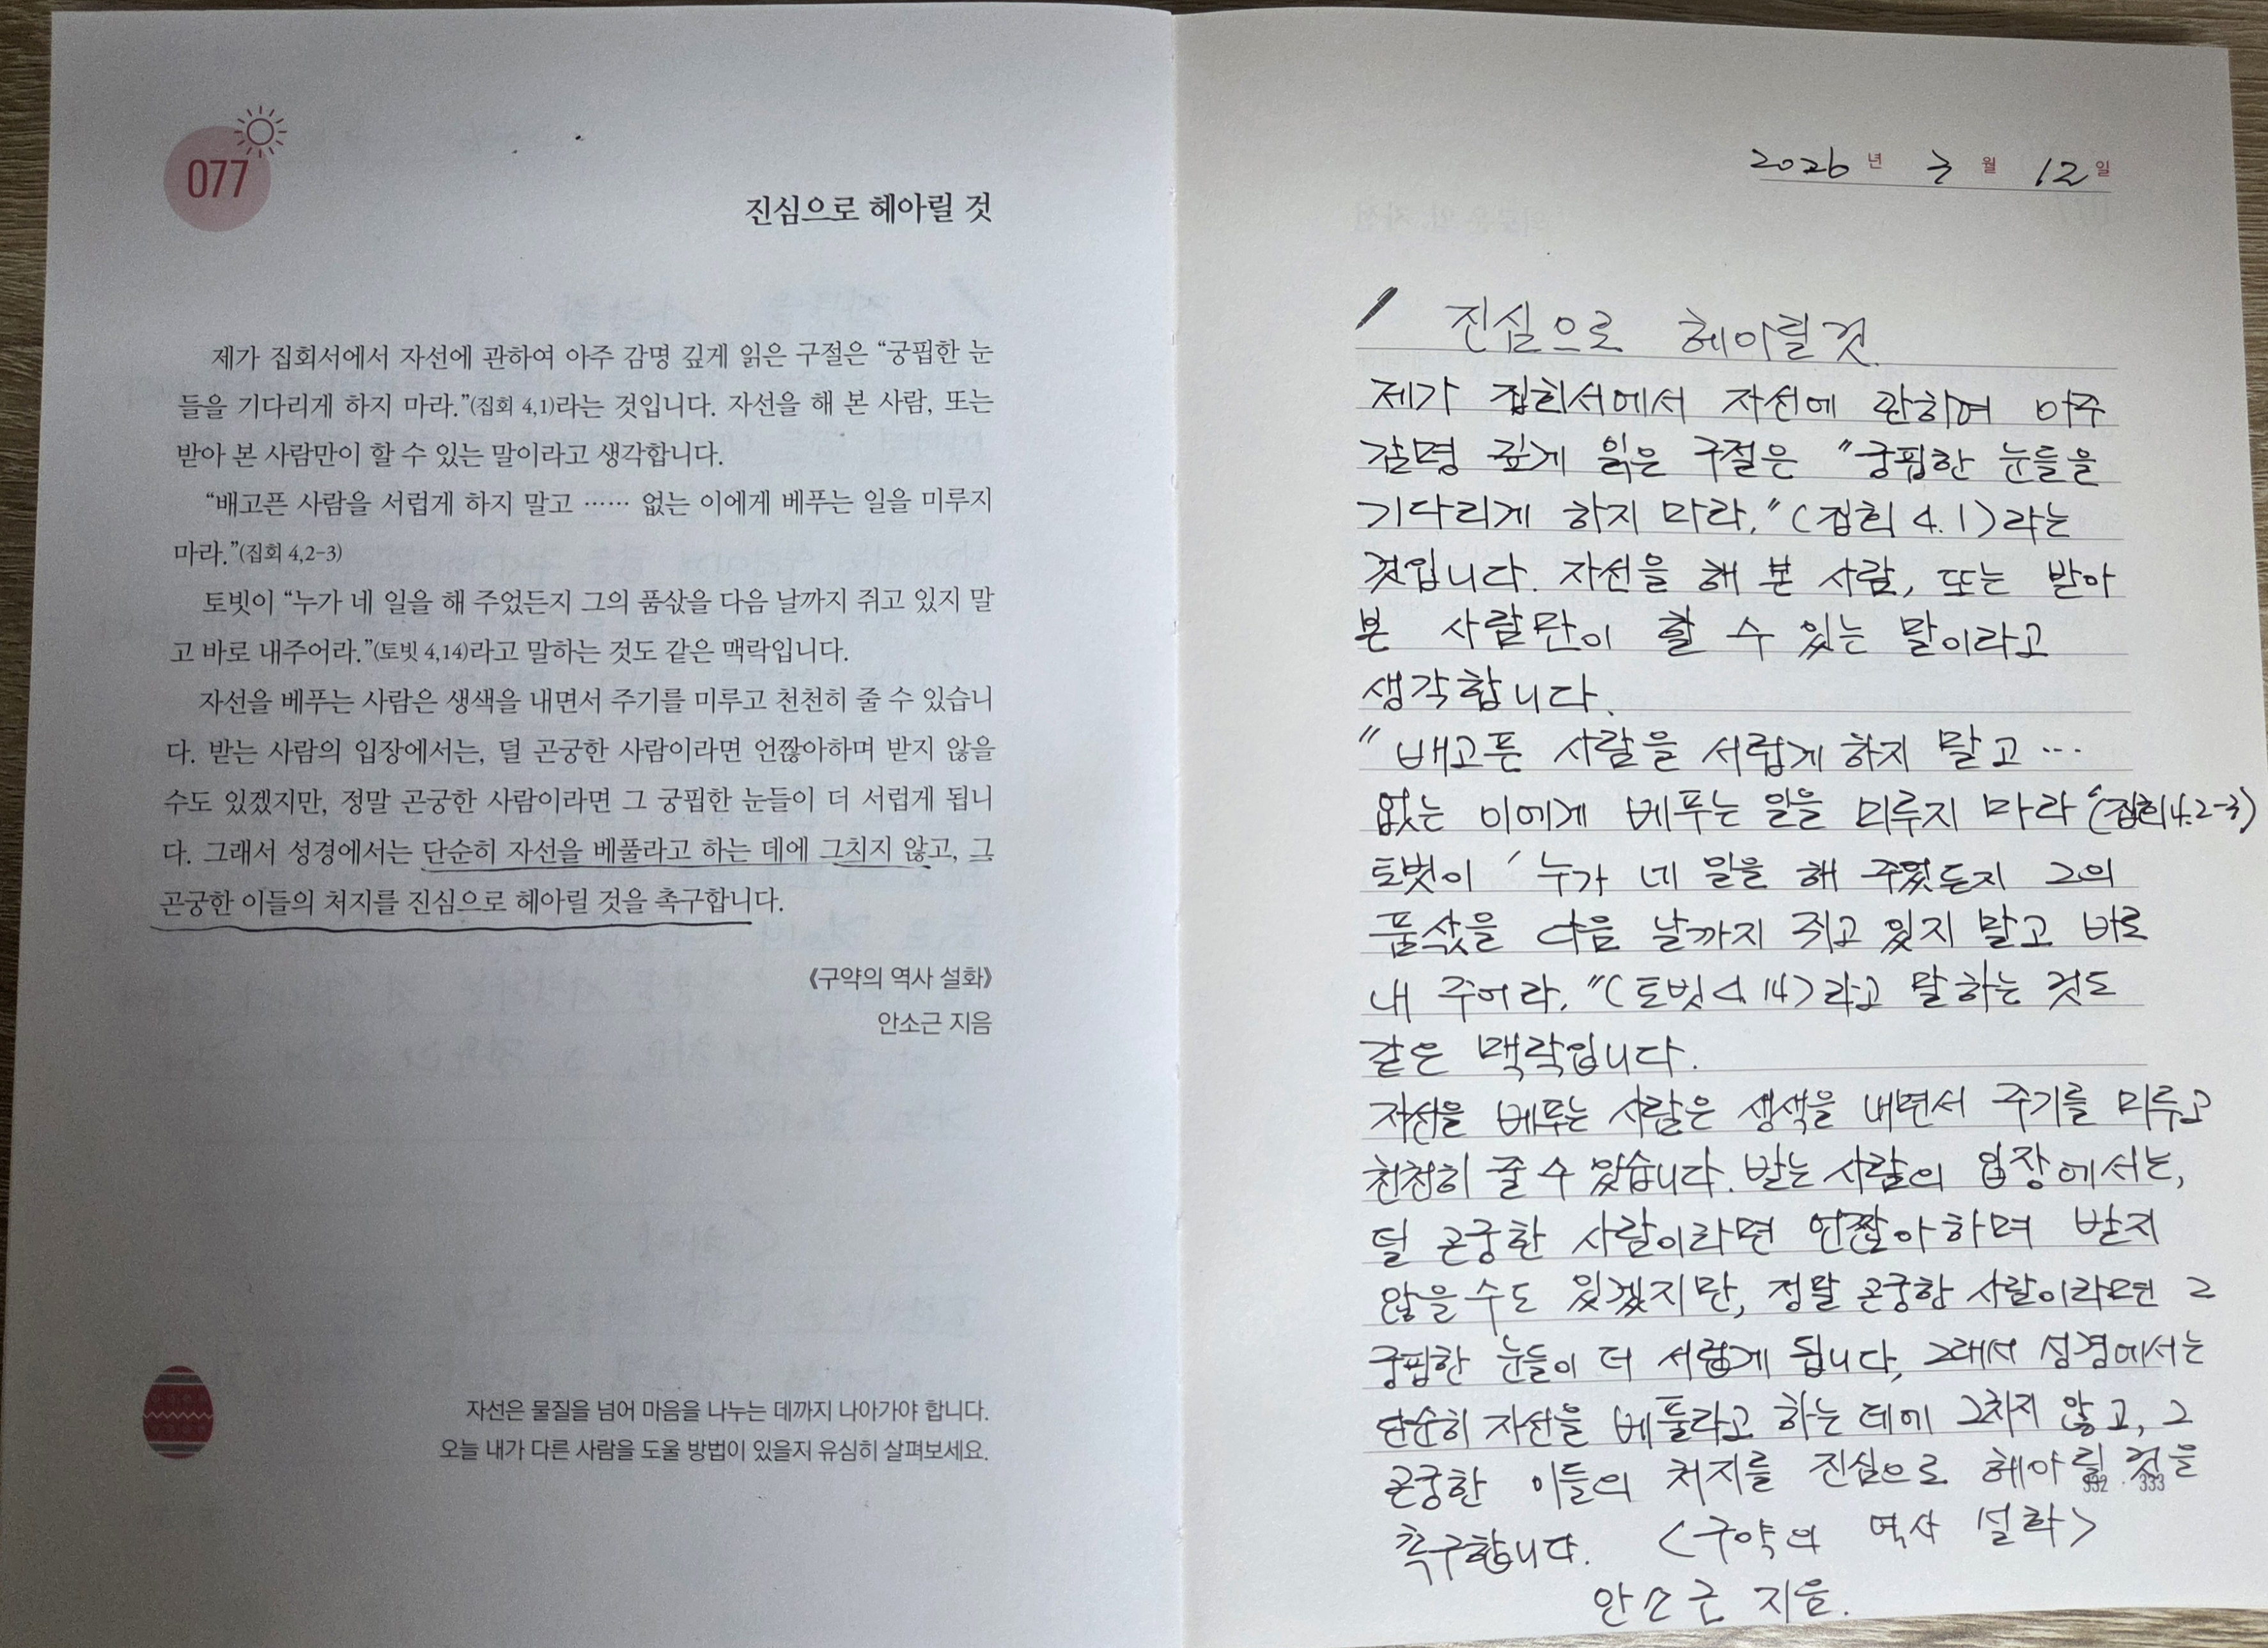 077
진심으로 헤아릴 것
제가 집회서에서 자선에 관하여 아주 감명 깊게 읽은 구절은 “궁핍한 눈
들을 기다리게 하지 마라.”(집회 4,1)라는 것입니다. 자선을 해 본 사람, 또는
받아 본 사람만이 할 수 있는 말이라고 생각합니다.
“배고픈 사람을 서럽게 하지 말고 …… 없는 이에게 베푸는 일을 미루지
마라.”(집회 4,2-3)
토빗이 “누가 네 일을 해 주었든지 그의 품삯을 다음 날까지 쥐고 있지 말
고 바로 내주어라.”(토빗 4,14)라고 말하는 것도 같은 맥락입니다.
자선을 베푸는 사람은 생색을 내면서 주기를 미루고 천천히 줄 수 있습니
다. 받는 사람의 입장에서는, 덜 곤궁한 사람이라면 언짢아하며 받지 않을
수도 있겠지만, 정말 곤궁한 사람이라면 그 궁핍한 눈들이 더 서럽게 됩니
다. 그래서 성경에서는 단순히 자선을 베풀라고 하는 데에 그치지 않고, 그
곤궁한 이들의 처지를 진심으로 헤아릴 것을 촉구합니다.
《구약의 역사 설화》
안소근 지음
자선은 물질을 넘어 마음을 나누는 데까지 나아가야 합니다.
오늘 내가 다른 사람을 도울 방법이 있을지 유심히 살펴보세요.
2026 년 3 월 12 일
진심으로 헤아릴 것.
제가 집회서에서 자선에 관하여 아주
감명 깊게 읽은 구절은 "궁핍한 눈들을
기다리게 하지 마라."(집회 4.1)라는
것입니다. 자선을 해 본 사람, 또는 받아
본 사람만이 할 수 있는 말이라고
생각합니다.
"배고픈 사람을 서럽게 하지 말고 …
없는 이에게 베푸는 일을 미루지 마라"(집회4.2-3)
토빗이 '누가 네 일을 해 주었든지 그의
품삯을 다음 날까지 쥐고 있지 말고 바로
내 주어라."(토빗 4.14)라고 말하는 것도
같은 맥락입니다.
자선을 베푸는 사람은 생색을 내면서 주기를 미루고
천천히 줄 수 있습니다. 받는 사람의 입장에서는,
덜 곤궁한 사람이라면 언짢아하며 받지
않을 수도 있겠지만, 정말 곤궁한 사람이라면 그
궁핍한 눈들이 더 서럽게 됩니다, 그래서 성경에서는
단순히 자선을 베풀라고 하는 데에 그치지 않고, 그
곤궁한 이들의 처지를 진심으로 헤아릴 것을
332 · 333
촉구합니다. <구약의 역사 설화>
안소근 지음.